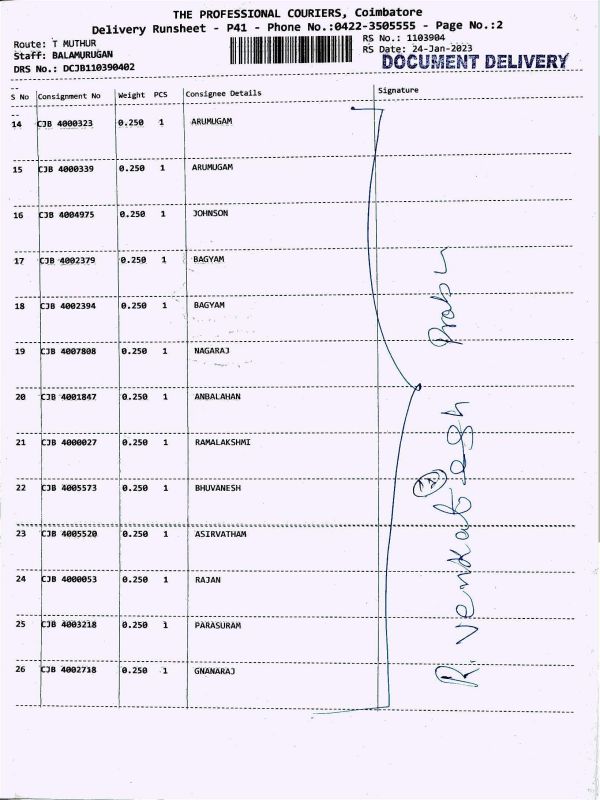 THE PROFESSIONAL COURIERS, Coimbatore
Delivery Runsheet - P41 - Phone No.:0422-3505555 - Page No.:2
Route: T MUTHUR
RS No.: 1103904
Staff: BALAMURUGAN
RS Date: 24-Jan-2023
DRS No.: DCJB110390402
DOCUMENT DELIVERY
S No Consignment No Weight PCS Consignee Details Signature
14 CJB 4000323 0.250 1 ARUMUGAM
15 CJB 4000339 0.250 1 ARUMUGAM
16 CJB 4004975 0.250 1 JOHNSON
17 CJB 4002379 0.250 1 BAGYAM
18 CJB 4002394 0.250 1 BAGYAM
19 CJB 4007808 0.250 1 NAGARAJ
20 CJB 4001847 0.250 1 ANBALAHAN
21 CJB 4000027 0.250 1 RAMALAKSHMI
22 CJB 4005573 0.250 1 BHUVANESH
23 CJB 4005520 0.250 1 ASIRVATHAM
24 CJB 4000053 0.250 1 RAJAN
25 CJB 4003218 0.250 1 PARASURAM
26 CJB 4002718 0.250 1 GNANARAJ
R. Venkatesh Prabu